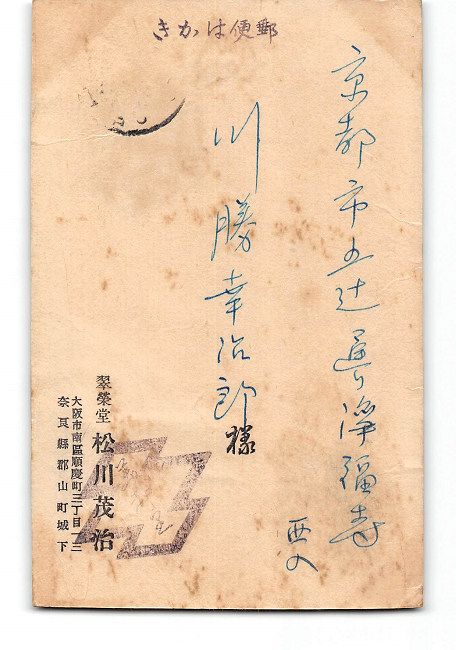 きかは便郵
京都市五辻通り浄福寺
西入
川勝幸治郎様
翠榮堂 松川茂治
大阪市南區順慶町三丁目一二
奈良縣郡山町城下